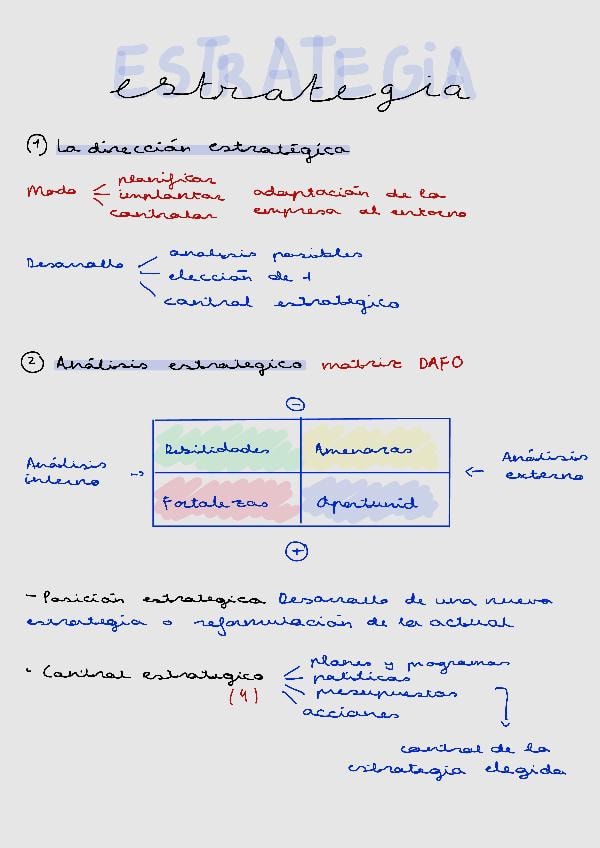 ESTRATEGIA
estrategia
1 La dirección estratégica
Modo
planificar
implantar
controlar
adaptación de la
empresa al entorno
Desarrollo
analisis posibles
elección de 1
control estrategico
2 Análisis estrategico matriz DAFO
-
Debilidades Amenazas
Análisis
interno
Análisis
externo
Fortalezas Oportunid
+
- Posición estrategica Desarrollo de una nueva
estrategia o reformulación de la actual
· Control estrategico
(4)
planes y programas
políticas
presupuestos
acciones
control de la
estrategia elegida